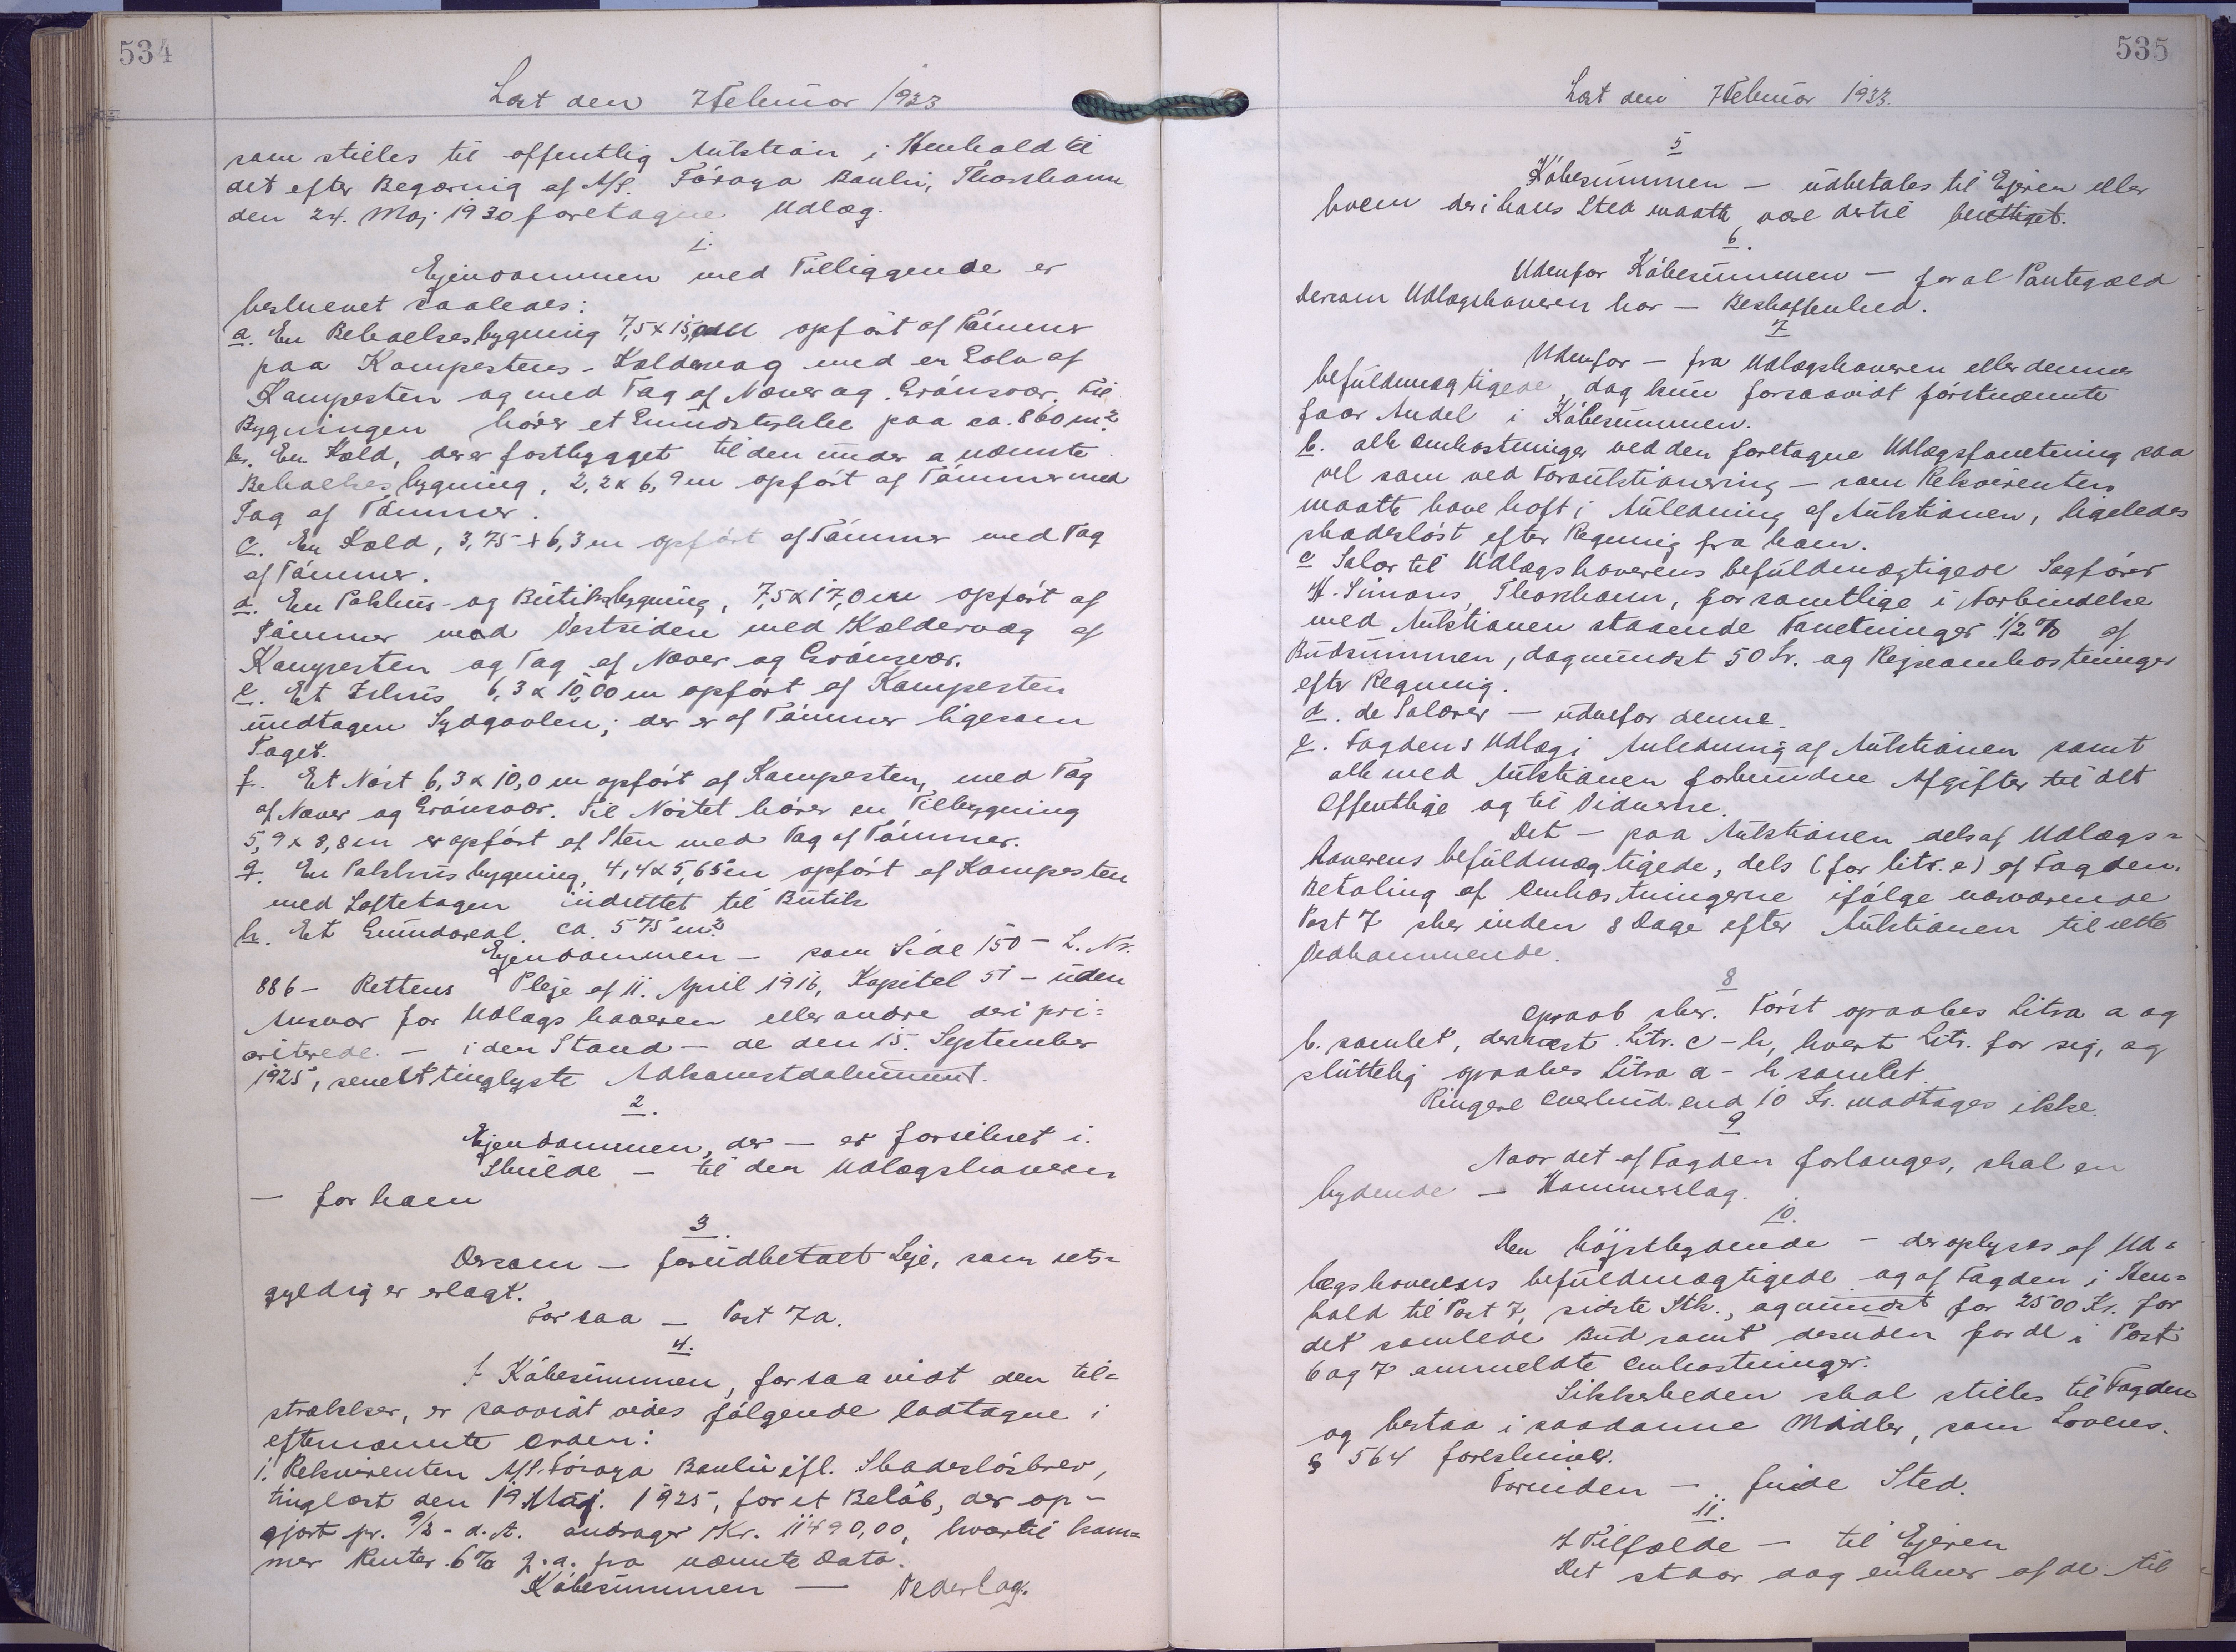 534
Læst den 7 Februar 1933
som stilles til offentlig Auktion i Henhold til
det efter Begæring af A/S. Fóroya Banki, Thorshavn
den 24. Maj 1930 foretagne Udlæg.
1.
Ejendommen med Tilliggende er
beskrevet saaledes:
a. En Beboelsesbygning 7,5 x 15, opfört af Tömmer
paa Kampestens-Kældervæg med en Gavl af
Kampesten og med Tag af Næver og Grönsvær. Til
Bygningen hörer et Grundstykke paa ca. 860 m²
b. En Kold, der er fastbygget til den under a nævnte
Beboelsesbygning, 2,2 x 6,9 m opfört af Tömmer med
Tag af Tömmer.
c. En Kold, 3,75 x 6,3 m opfört af Tömmer med Tag
af Tömmer.
d. En Pakhus- og Butiksbygning, 7,5 x 17,0 m opfört af
Tömmer mod Vestsiden med Kældervæg af
Kampesten og Tag af Næver og Grönsvær.
e. Et Ishus 6,3 x 10,00 m opfört af Kampesten
undtagen Sydgavlen; der er af Tömmer ligesom
Taget.
f. Et Nöst 6,3 x 10,0 m opfört af Kampesten, med Tag
af Næver og Grönsvær. Til Nöstet hörer en Tilbygning
5,9 x 3,8 m er opfört af Sten med Tag af Tömmer.
g. En Pakhusbygning, 4,4 x 5,65 m opfört af Kampesten
med Loftetagen indrettet til Butik
h. Et Grundareal ca. 575 m²
Ejendommen — som Side 150 - L. Nr.
886 - Rettens Pleje af 11. April 1916, Kapitel 51 - uden
Ansvar for Udlægshaveren eller andre deri pri=
oriterede. — i den Stand — de den 15. September
1925, senest tinglyste Adkomstdokument.
2.
Ejendommen, der — er forsikret i.
Skulde — til den Udlægshaveren
— for ham
3.
Dersom — forudbetalt Leje, som rets=
gyldig er erlagt.
For saa — Post 7a.
4.
I Köbesummen, forsaavidt den til=
strækker, er saavidt vides fölgende lodtagne i
efternævnte Orden:
1. Rekvirenten A/S. Fóroya Banki ifl. Skadeslösbrev,
tinglæst den 19 Maj. 1925, for et Belöb, der op-
gjort pr. 9/2 - d. A. andrager Kr. 11490,00, hvortil kom=
mer Renter 6% p. a. fra nævnte Dato.
Köbesummen — Vederlag.
535
Læst den 7 Februar 1933.
5
Köbesummen — udbetales til Ejeren eller
hvem der i hans Sted maatte være dertil berettiget.
6.
Udenfor Köbesummen — for al Pantegæld
dersom Udlægshaveren har — Beskaffenhed.
7
Udenfor — fra Udlægshaveren eller dennes
befuldmægtigede dog kun forsaavidt förstnævnte
faar Andel i Köbesummen.
b. alle Omkostninger ved den foretagne Udlægsforretning saa
vel som ved Forauktionering — som Rekvirenten
maatte have haft i Anledning af Auktionen, ligeledes
skadeslöst efter Regning fra ham.
c Salær til Udlægshaverens befuldmægtigede Sagförer
H. Simons, Thorshavn, for samtlige i Forbindelse
med Auktionen staaende Forretninger 1/2 % af
Budsummen, dog mindst 50 Kr. og Rejseomkostninger
efter Regning.
d. de Salærer — udenfor denne.
e. Fogdens Udlæg i Anledning af Auktionen samt
alle med Auktionen forbundne Afgifter til det
Offentlige og til Vidnerne.
Det — paa Auktionen dels af Udlægs=
haverens befuldmægtigede, dels (for litr. e) af Fogden.
Betaling af Omkostningerne ifölge nærværende
Post 7 sker inden 8 Dage efter Auktionen til rette
Vedkommende.
8
Opraab sker. Först opraabes Litra a og
b. samlet, dernæst Litr. c - h, hvert Litr. for sig, og
sluttelig opraabes Litra a - h samlet.
Ringere Overbud end 10 Kr. modtages ikke.
9
Naar det af Fogden forlanges, skal en
bydende — Hammerslag.
10.
Den höjstbydende — der oplyses af Ud=
lægshaverens befuldmægtigede og af Fogden i Hen=
hold til Post 7, sidste Stk., og mindst for 2500 Kr. for
det samlede Bud samt desuden for de i Post
6 og 7 anmeldte Omkostninger.
Sikkerheden skal stilles til Fogden
og bestaa i saadanne Midler, som Lovens.
§ 564 foreskriver.
Forinden — finde Sted.
11.
I Tilfælde — til Ejeren
Det staar dog enhver af de til